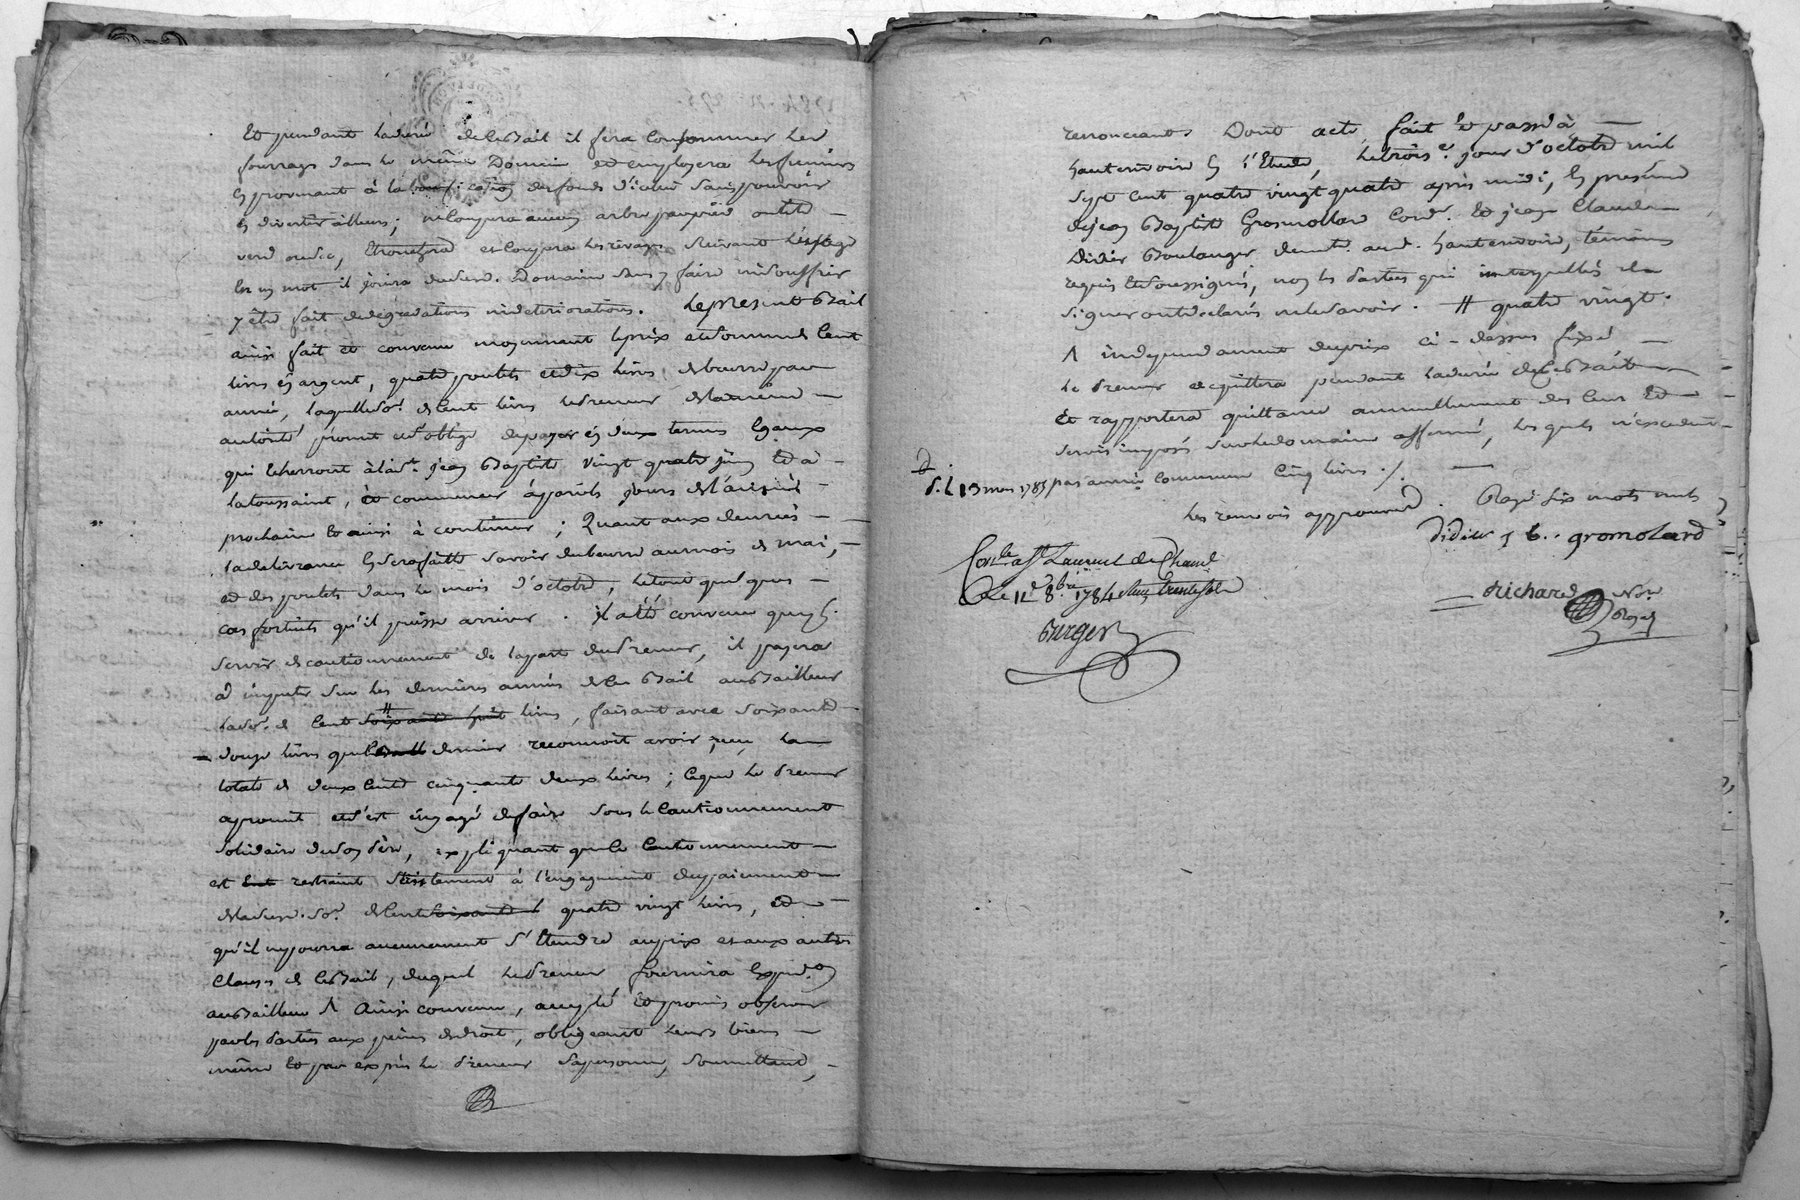 Et pendant la durée de ce Bail il fera consommer les
fourrages dans le même Domaine et employera les fumiers
en provenant à la bonification des fonds d'icelui sans pouvoir
en divertir ailleurs; ne coupera aucun arbre par pied ou tete
verd ou sec, et coupera les rivages suivant l'usage
En un mot il jouira dudit. Domaine sans y faire ni souffrir
y être fait de dégradations ni deteriorations. Le present Bail
ainsi fait et convenu moyennant le prix et somme de Cent
livres en argent, quatre poulets et dix livres de beurre par
année, laquelle so.e de Cent livres le Preneur de la même
autorité promet et s'oblige de payer en deux termes Egaux
qui Echerront à la st. jean Baptiste vingt quatre juin et à
la toussaint, et commencer à pareils jours de l'année
prochaine et ainsi à continuer; Quant aux denrées
la delivrance en sera faitte savoir du beurre au mois de mai,
et des poulets dans le mois d'octobre, le tout quelques
cas fortuits qu'il puisse arriver. il a été convenu que pr.
servir de cautionnement de la part du Preneur, il payera
à imputer sur les dernieres années de ce Bail au Bailleur
la so.e de Cent soixante huit # livres, faisant avec soixante
douze livres que ce dernier reconnoit avoir reçu la
totale de deux Cents cinquante deux livres; ce que le Preneur
a promit et s'est engagé de faire sous le Cautionnement
solidaire de son Père, expliquant que le Cautionnement
est restraint seulement à l'engagement du paiement
de ladite. so.e de Cent soixante quatre vingt livres, et
qu'il ne pourra aucunement s'Etendre au prix et aux autres
Clauses de ce Bail, duquel le Preneur fournira Expedon
au Bailleur Λ Ainsi convenu, accepté et promis observer
par les Parties aux peines de droit, obligeant leurs biens
même et par exprès le Preneur sa personne, soumettant,
renonceants Dont acte, fait et passé à
hautervoir en l'Etude, le trois.e jour d'octobre mil
sept cent quatre vingt quatre après midi, En présence
de jean Baptiste Grosmollard Cord.r Et jean Claude
Didier Boulanger demt. aud. hautervoir, témoins
requis et soussignés, non les Parties qui interpellées de
signer ont déclarés ne le savoir. # quatre vingt.
Λ indépendament du prix ci-dessus fixé
le Preneur acquittera pendant la durée de ce Bail
Et rapportera quittance annuellement des Cens Et
servis imposés sur le domaine affermé, lesquels n'excedent
par année commune Cinq livres ./.
d. l. 13 mars 1785
les renvois approuvés. Rayé six mots nuls
Didier j b.. gromolard
Conlé à St Laurent de
Le 11 8.bre 1784 Reçu trente sols
Burger
Richard Nre
Royal